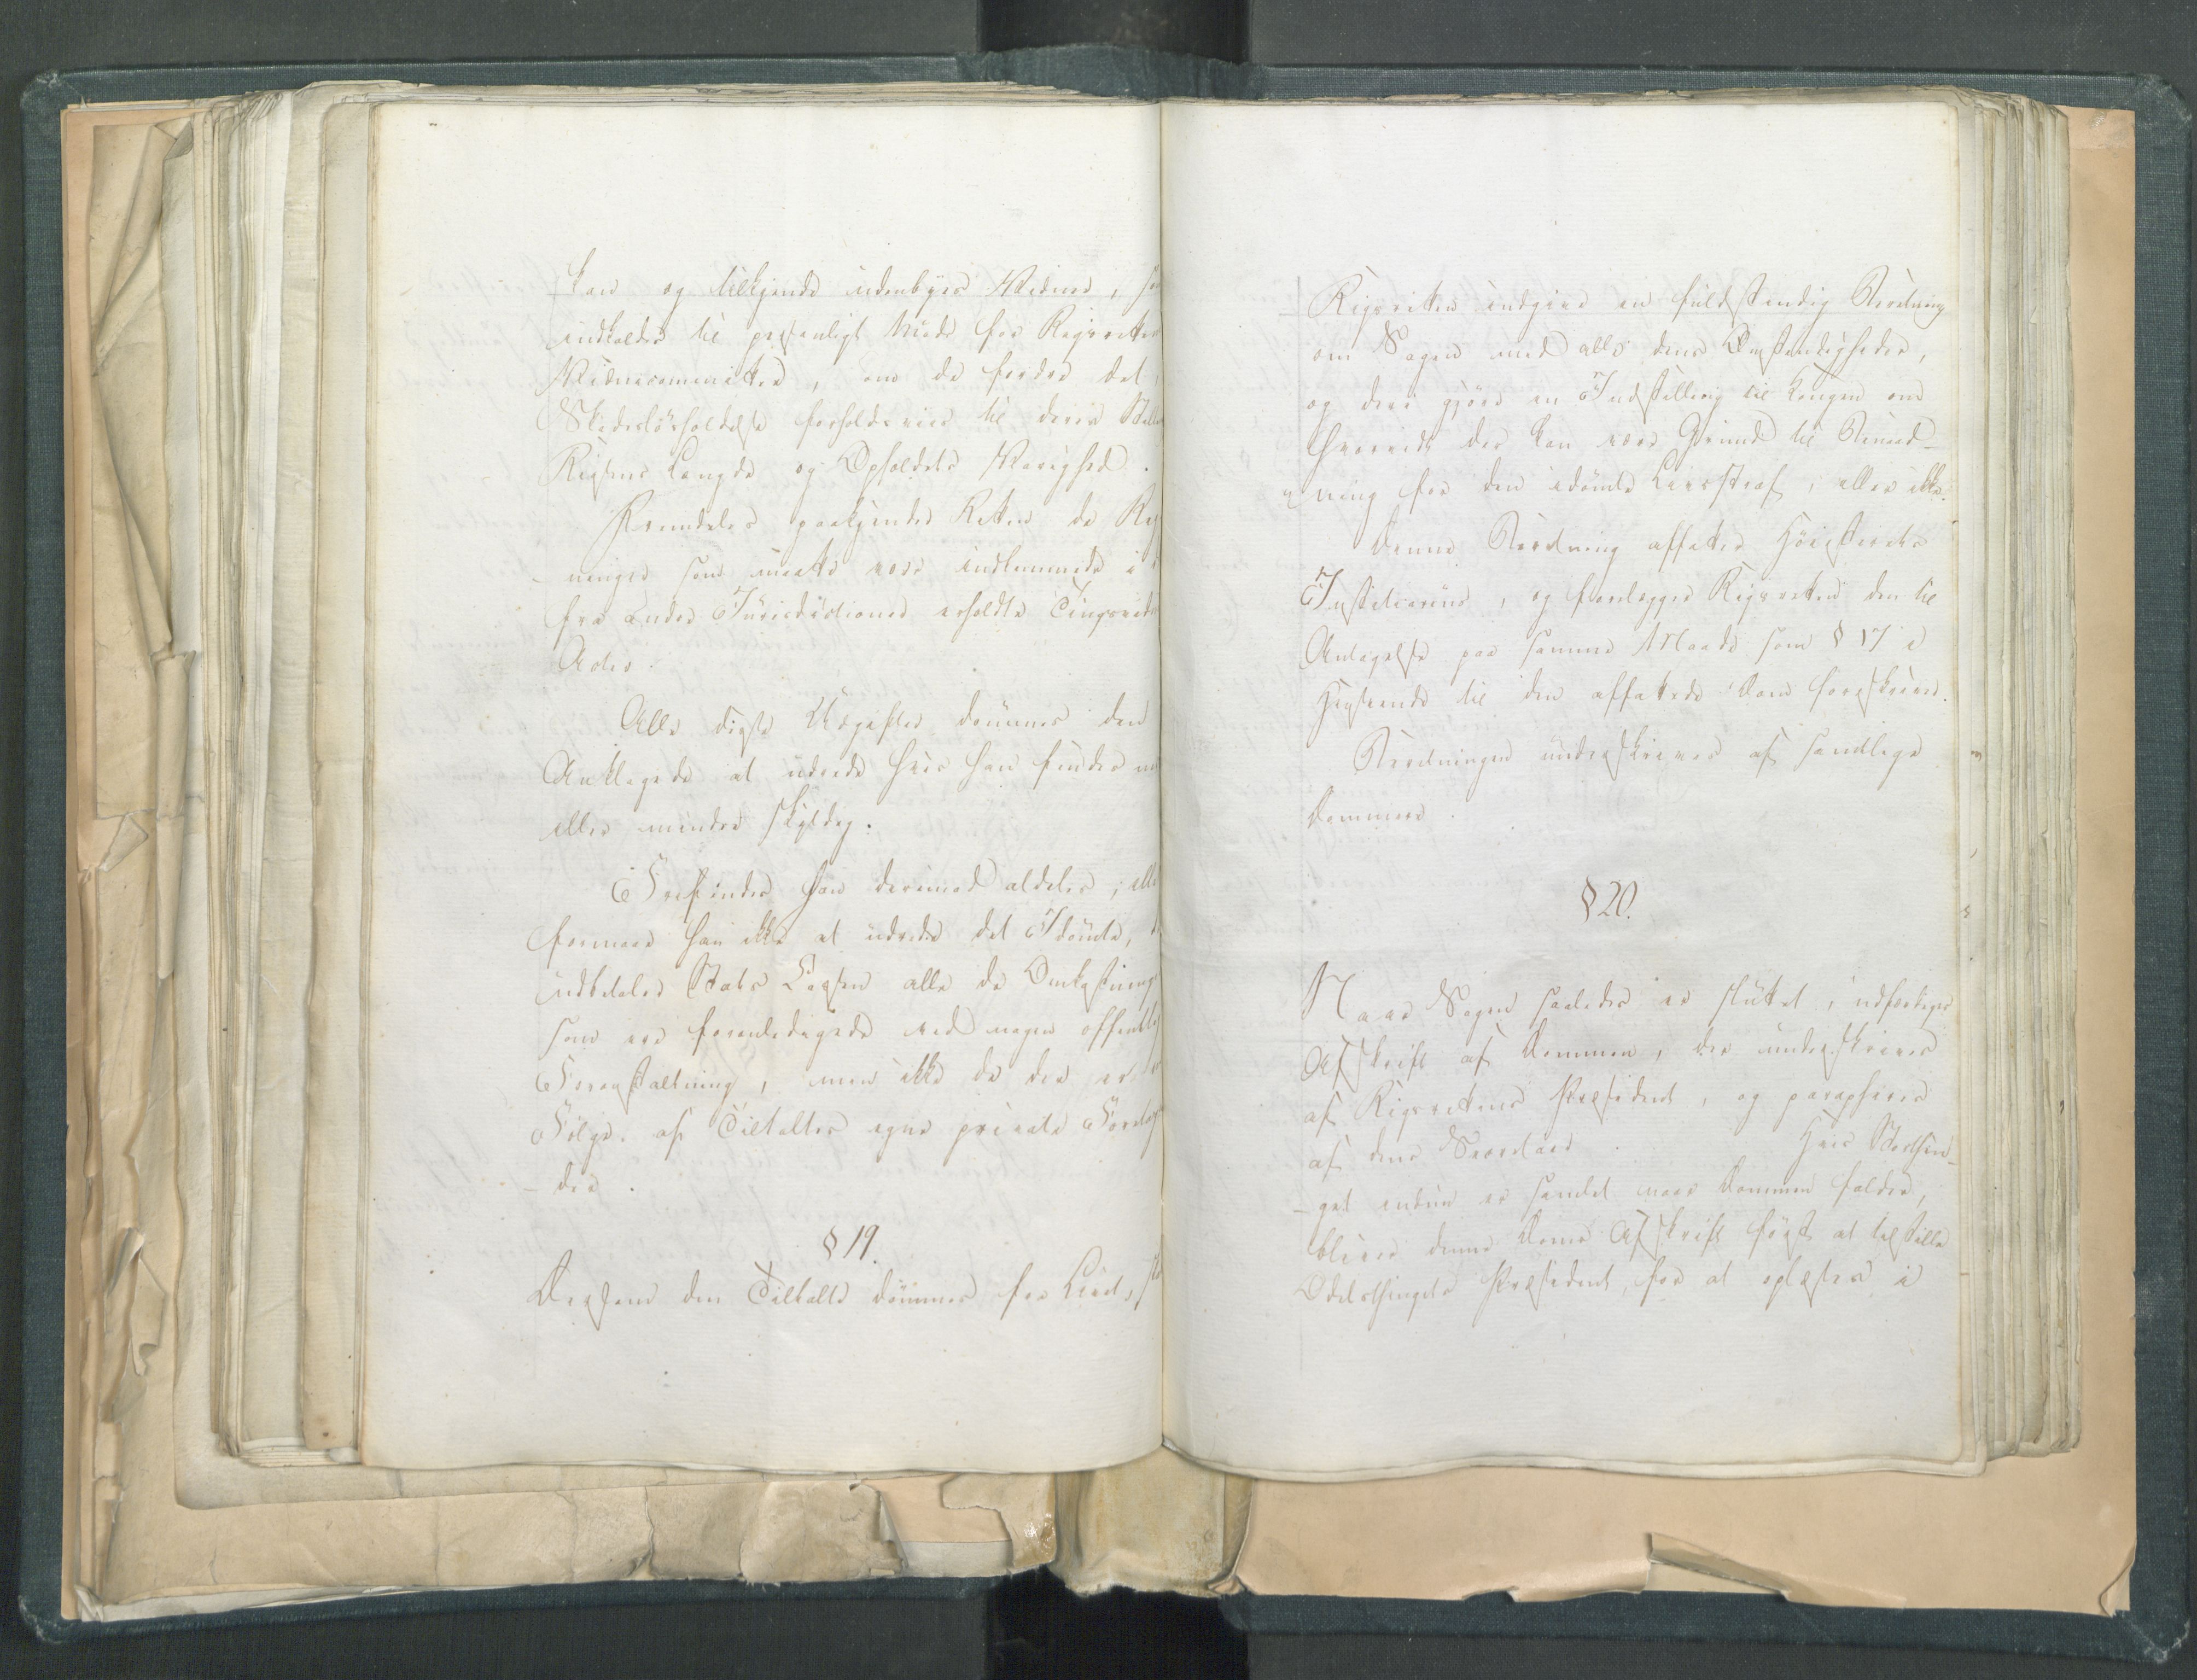 kan og tilkjende udenbyes Vidner, so
indkaldes til personligt Møde for Rigsretten
Vidnesomeritter, om de fordre det,
Skadesløsholdelse forholdsviis til deres Still
Reisens Længde og Opholdets Varighed.
Fremdeles paakjender Retten de Reg
-ninger som maatte være indlemmede i
fra andre Jurisdictioner erholdte Tingsvidne
Acter.
Alle disse Udgifter dømmes den
Anklagede at udrede hvis han findes me
eller mindre skyldig.
Frifindes han derimod aldeles, elle
formaaer han ikke at udrede det Idømte,
udbetaler Stats Cassen alle de Omkostning
som ere foranledigede ved nogen offentlig
Foranstaltning, men ikke de der er
Følge af Tiltaltes egne private Foretag
-der.
§ 19.
Dersom den Tiltalte dømmes fra Livet, sk
Rigsretten indgive en fuldstændig Beretning
om Sagen med alle dens Omstændigheder,
og deri gjøre en Indstilling til Kongen om
hvorvidt der kan være Grund til Benaad-
-ning for den idømte Livsstraf, eller ikke.
Denne Beretning affatter Høiesterets
Justitiarius, og forelægger Rigsretten den til
Antagelse paa samme Maade som § 17 i
Henseende til den affattede Dom foreskriver.
Beretningen underskrives af samtlige
Dommere.
§ 20.
Naar Sagen saaledes er sluttet, udfærdiges
Afskrift af Dommen, der underskrives
af Rigsrettens Præsident, og parapheres
af dens Secretair. Hvis Storthin-
-get endnu er samlet naar Dommen falder,
bliver denne Doms Afskrift først at tilstille
Odelsthingets Præsident, for at oplæses i